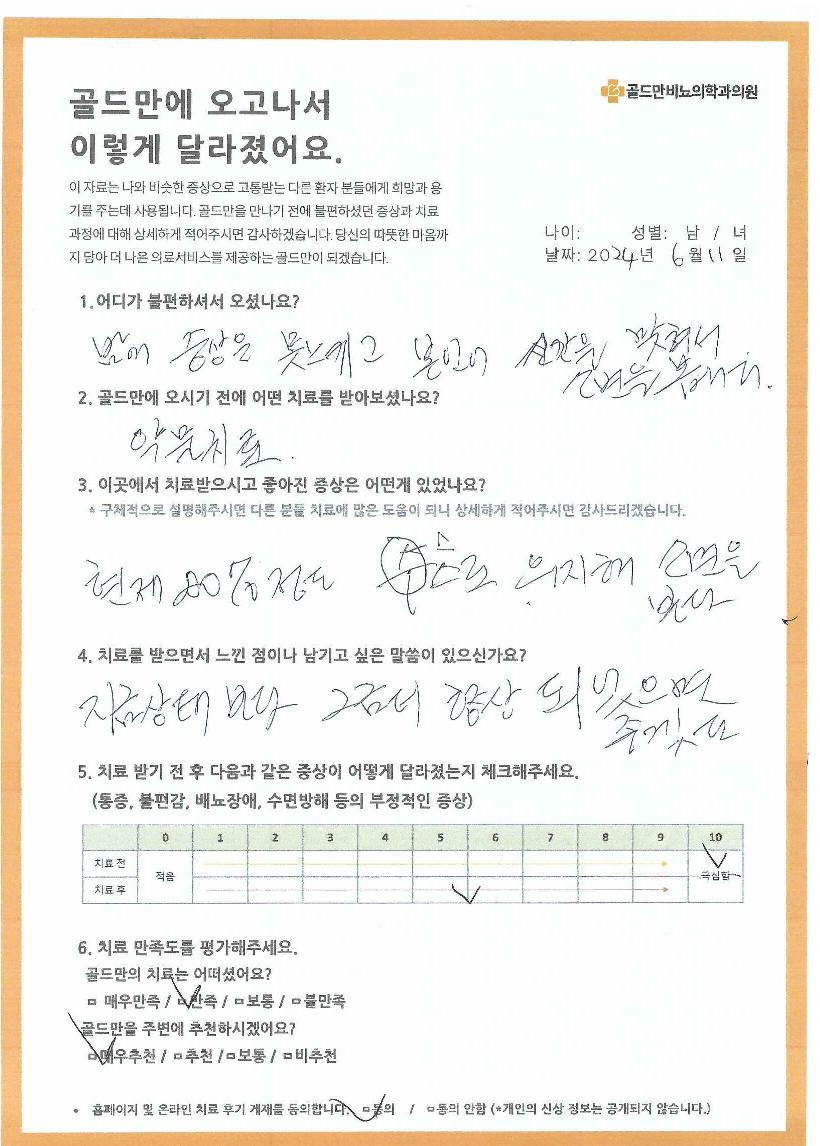 골드만에 오고나서
이렇게 달라졌어요.
골드만비뇨의학과의원
이 자료는 나와 비슷한 증상으로 고통받는 다른 환자 분들에게 희망과 용
기를 주는데 사용됩니다. 골드만을 만나기 전에 불편하셨던 증상과 치료
과정에 대해 상세하게 적어주시면 감사하겠습니다. 당신의 따뜻한 마음까
지 담아 더 나은 의료서비스를 제공하는 골드만이 되겠습니다.
나이: 성별: 남 / 녀
날짜: 2024년 6월 11일
1.어디가 불편하셔서 오셨나요?
증상은 못느께고 본인이 시간을 맞춰서
소변을 봅니다.
2. 골드만에 오시기 전에 어떤 치료를 받아보셨나요?
약물치료.
3. 이곳에서 치료받으시고 좋아진 증상은 어떤게 있었나요?
* 구체적으로 설명해주시면 다른 분들 치료에 많은 도움이 되니 상세하게 적어주시면 감사드리겠습니다.
현제 80% 정도 스스로 의지해 소변을
본다
4. 치료를 받으면서 느낀 점이나 남기고 싶은 말씀이 있으신가요?
지금상태 보다 향상 되
5. 치료 받기 전 후 다음과 같은 증상이 어떻게 달라졌는지 체크해주세요.
(통증, 불편감, 배뇨장애, 수면방해 등의 부정적인 증상)
0 1 2 3 4 5 6 7 8 9 10
치료 전
적음 극심함
치료 후
6. 치료 만족도를 평가해주세요.
골드만의 치료는 어떠셨어요?
매우만족 / 만족 / 보통 / 불만족
골드만을 주변에 추천하시겠어요?
매우추천 / 추천 / 보통 / 비추천
* 홈페이지 및 온라인 치료 후기 게재를 동의합니다. 동의 / 동의 안함 (*개인의 신상 정보는 공개되지 않습니다.)